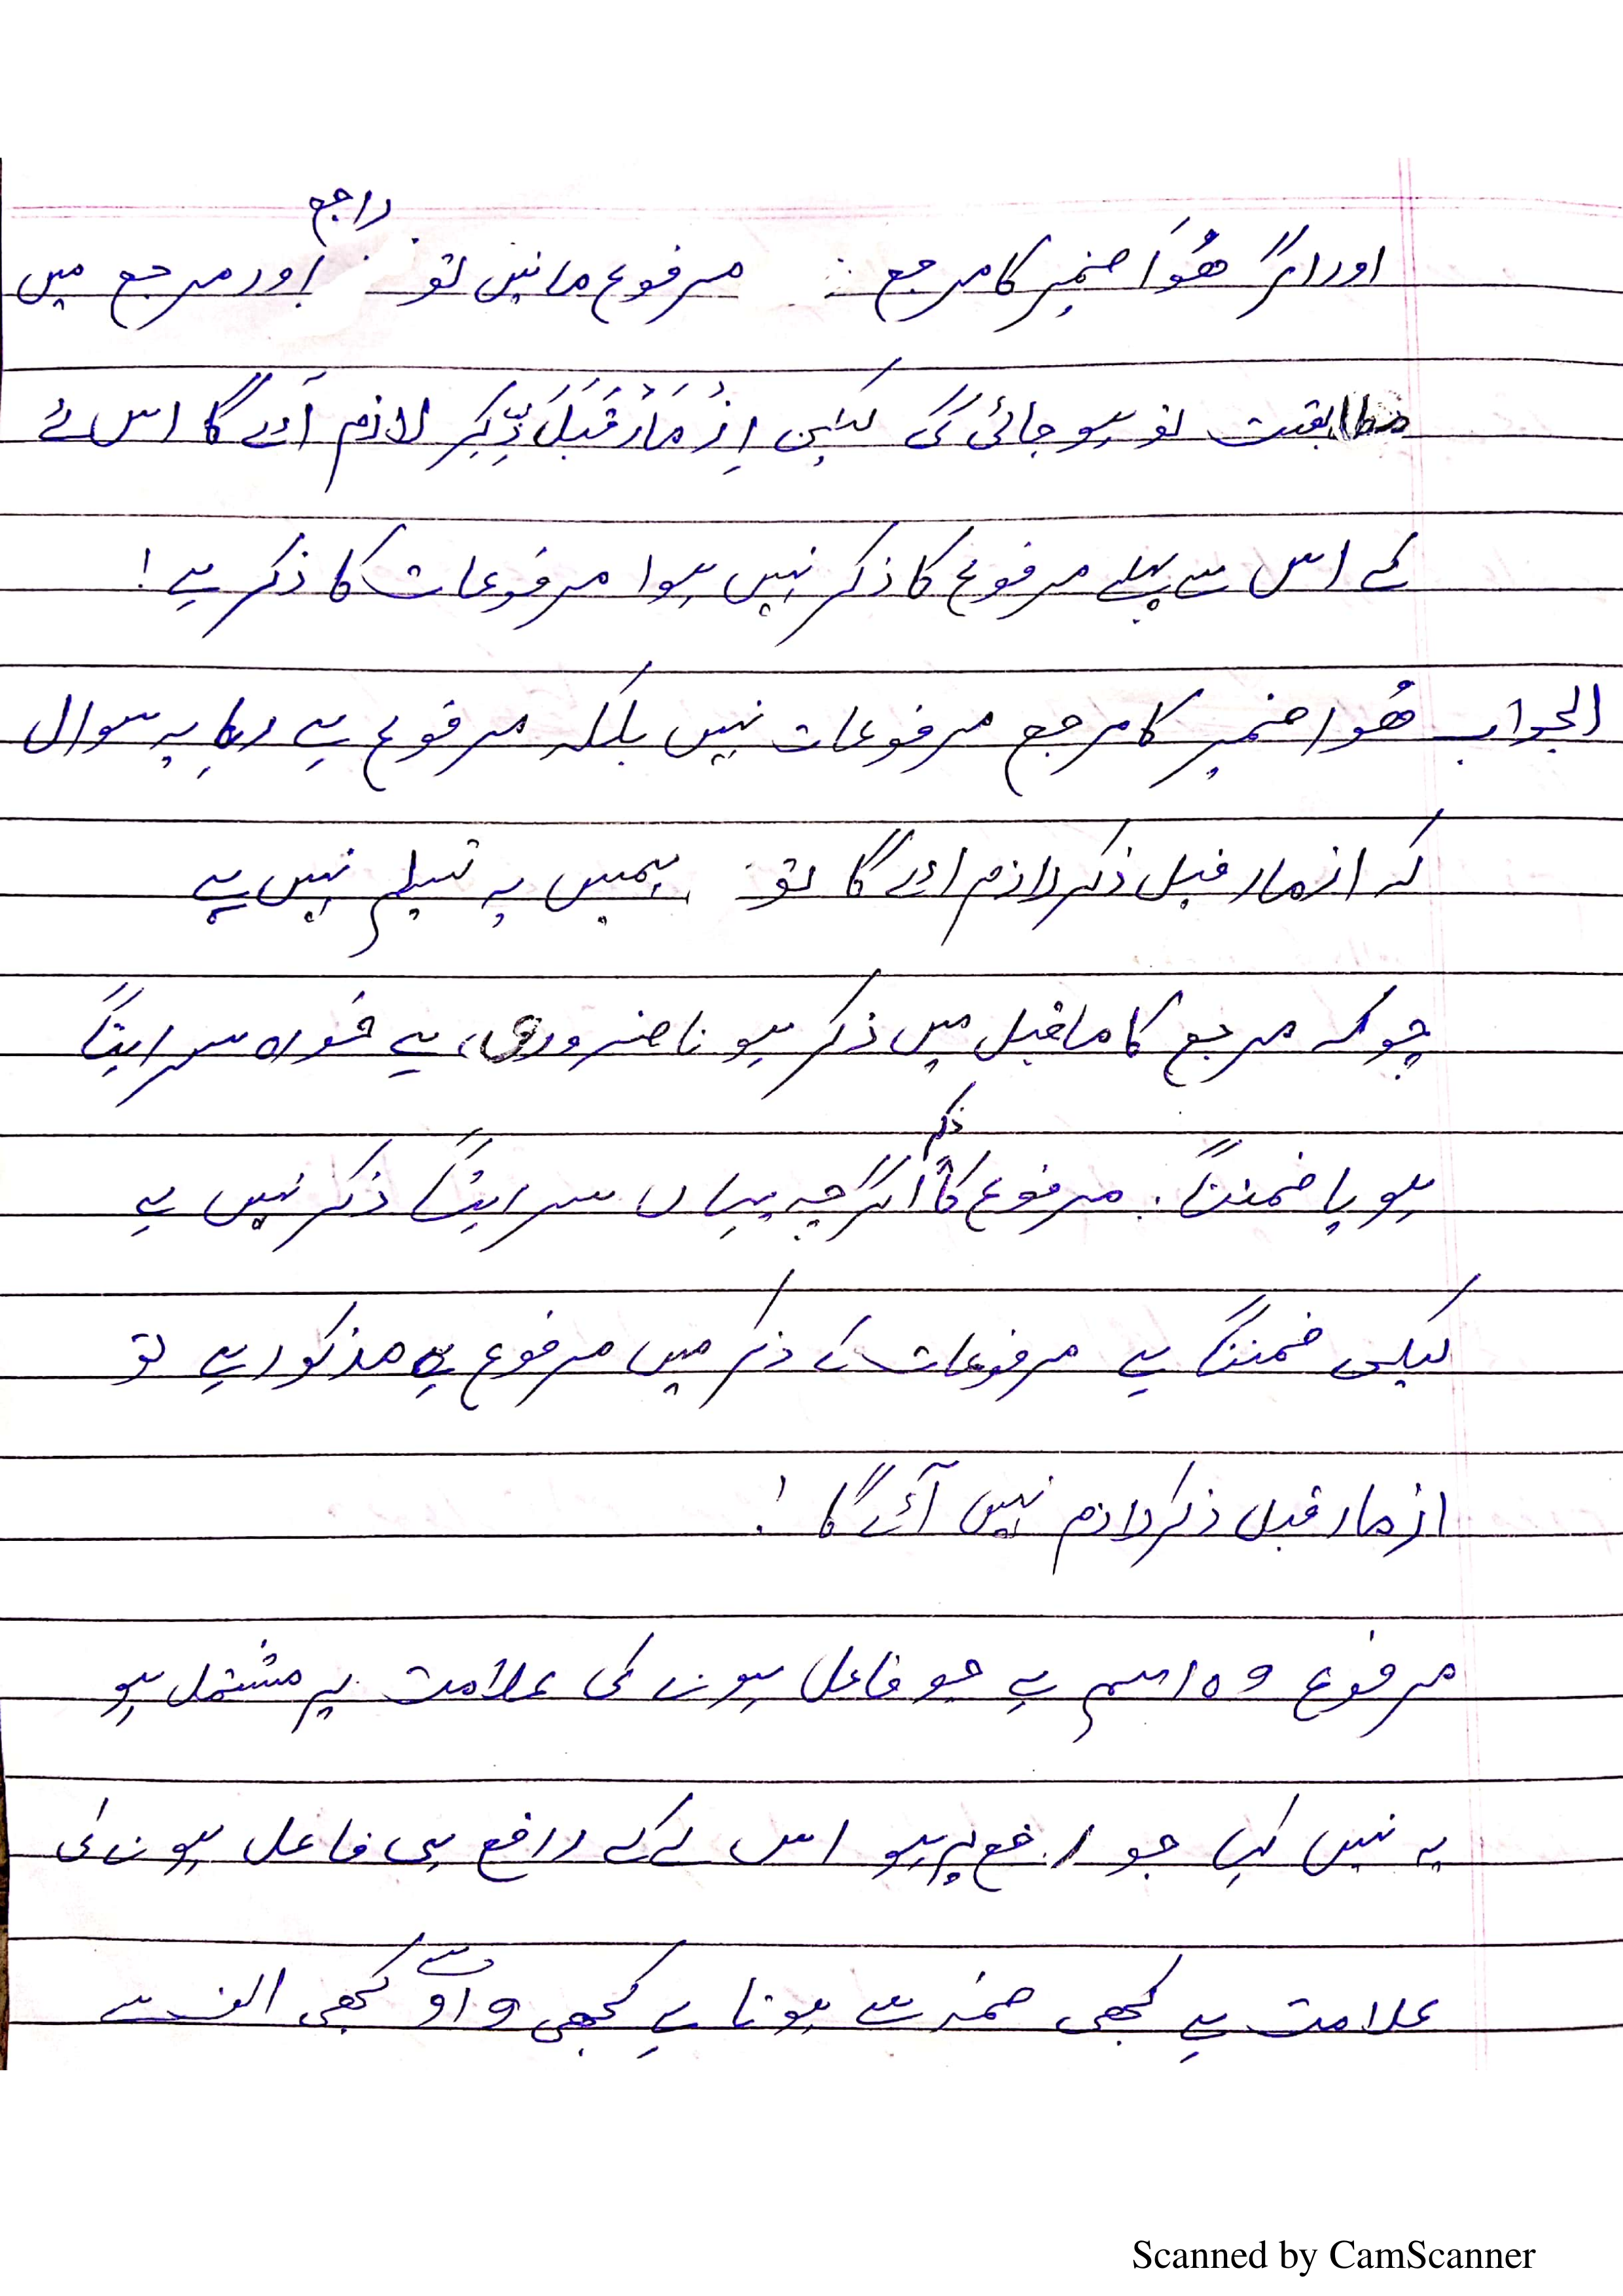 اور اگر ھُوَا ضمیر کا مرجع مرفوع مانیں تو راجع اور مرجع میں
مطابقت تو ہو جائی گی لیکن اِزْمَارْ قَبَلَ ذِّکِر لازم آئے گا اس لئے
کے اس سے پہلے مرفوع کا ذکر نہیں ہوا مرفوعات کا ذکر ہے !
الجواب ھُوا ضمیر کا مرجع مرفوعات نہیں بلکہ مرفوع ہے رہا یہ سوال
کہ ازمار قبل ذکر لازم ائے گا تو ہمیں یہ تسلیم نہیں ہے
چوکہ مرجع کا ماقبل میں ذکر ہو نا ضروری ہے خوراہ سرایتاً
ہو یا ضمنناً . مرفوع کا ذکر اگرچہ یہاں سرایتاً ذکر نہیں ہے
لیکں ضمنناً ہے مرفوعات کے ذکر میں مرفوع ہے مذکور ہے تو
ازمار قبل ذکر لازم نہیں آئے گا !
مرفوع وہ اسم ہے جو فاعل ہونے کی علامت پر مشتمل ہو
یہ نہیں کہا جو رفع پر ہو اس لئے کے رافع ہی فاعل ہونے کی
علامت ہے کبھی ضمہ سے ہوتا ہے کبھی واؤ سے کبھی الف سے
Scanned by CamScanner